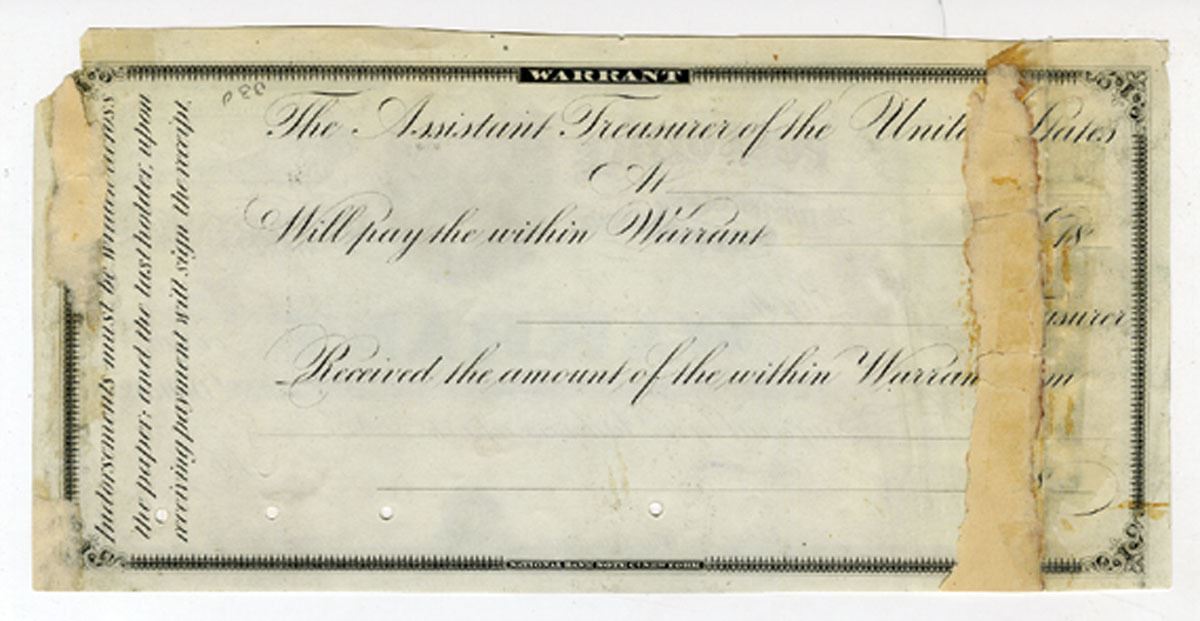 WARRANT
The Assistant Treasurer of the Unit States
At
Will pay the within Warrant 18
asurer
Received the amount of the within Warran m
NATIONAL BANK NOTE Co NEW YORK
Indorsements must be written across
the paper; and the last holder, upon
receiving payment will sign the receipt.